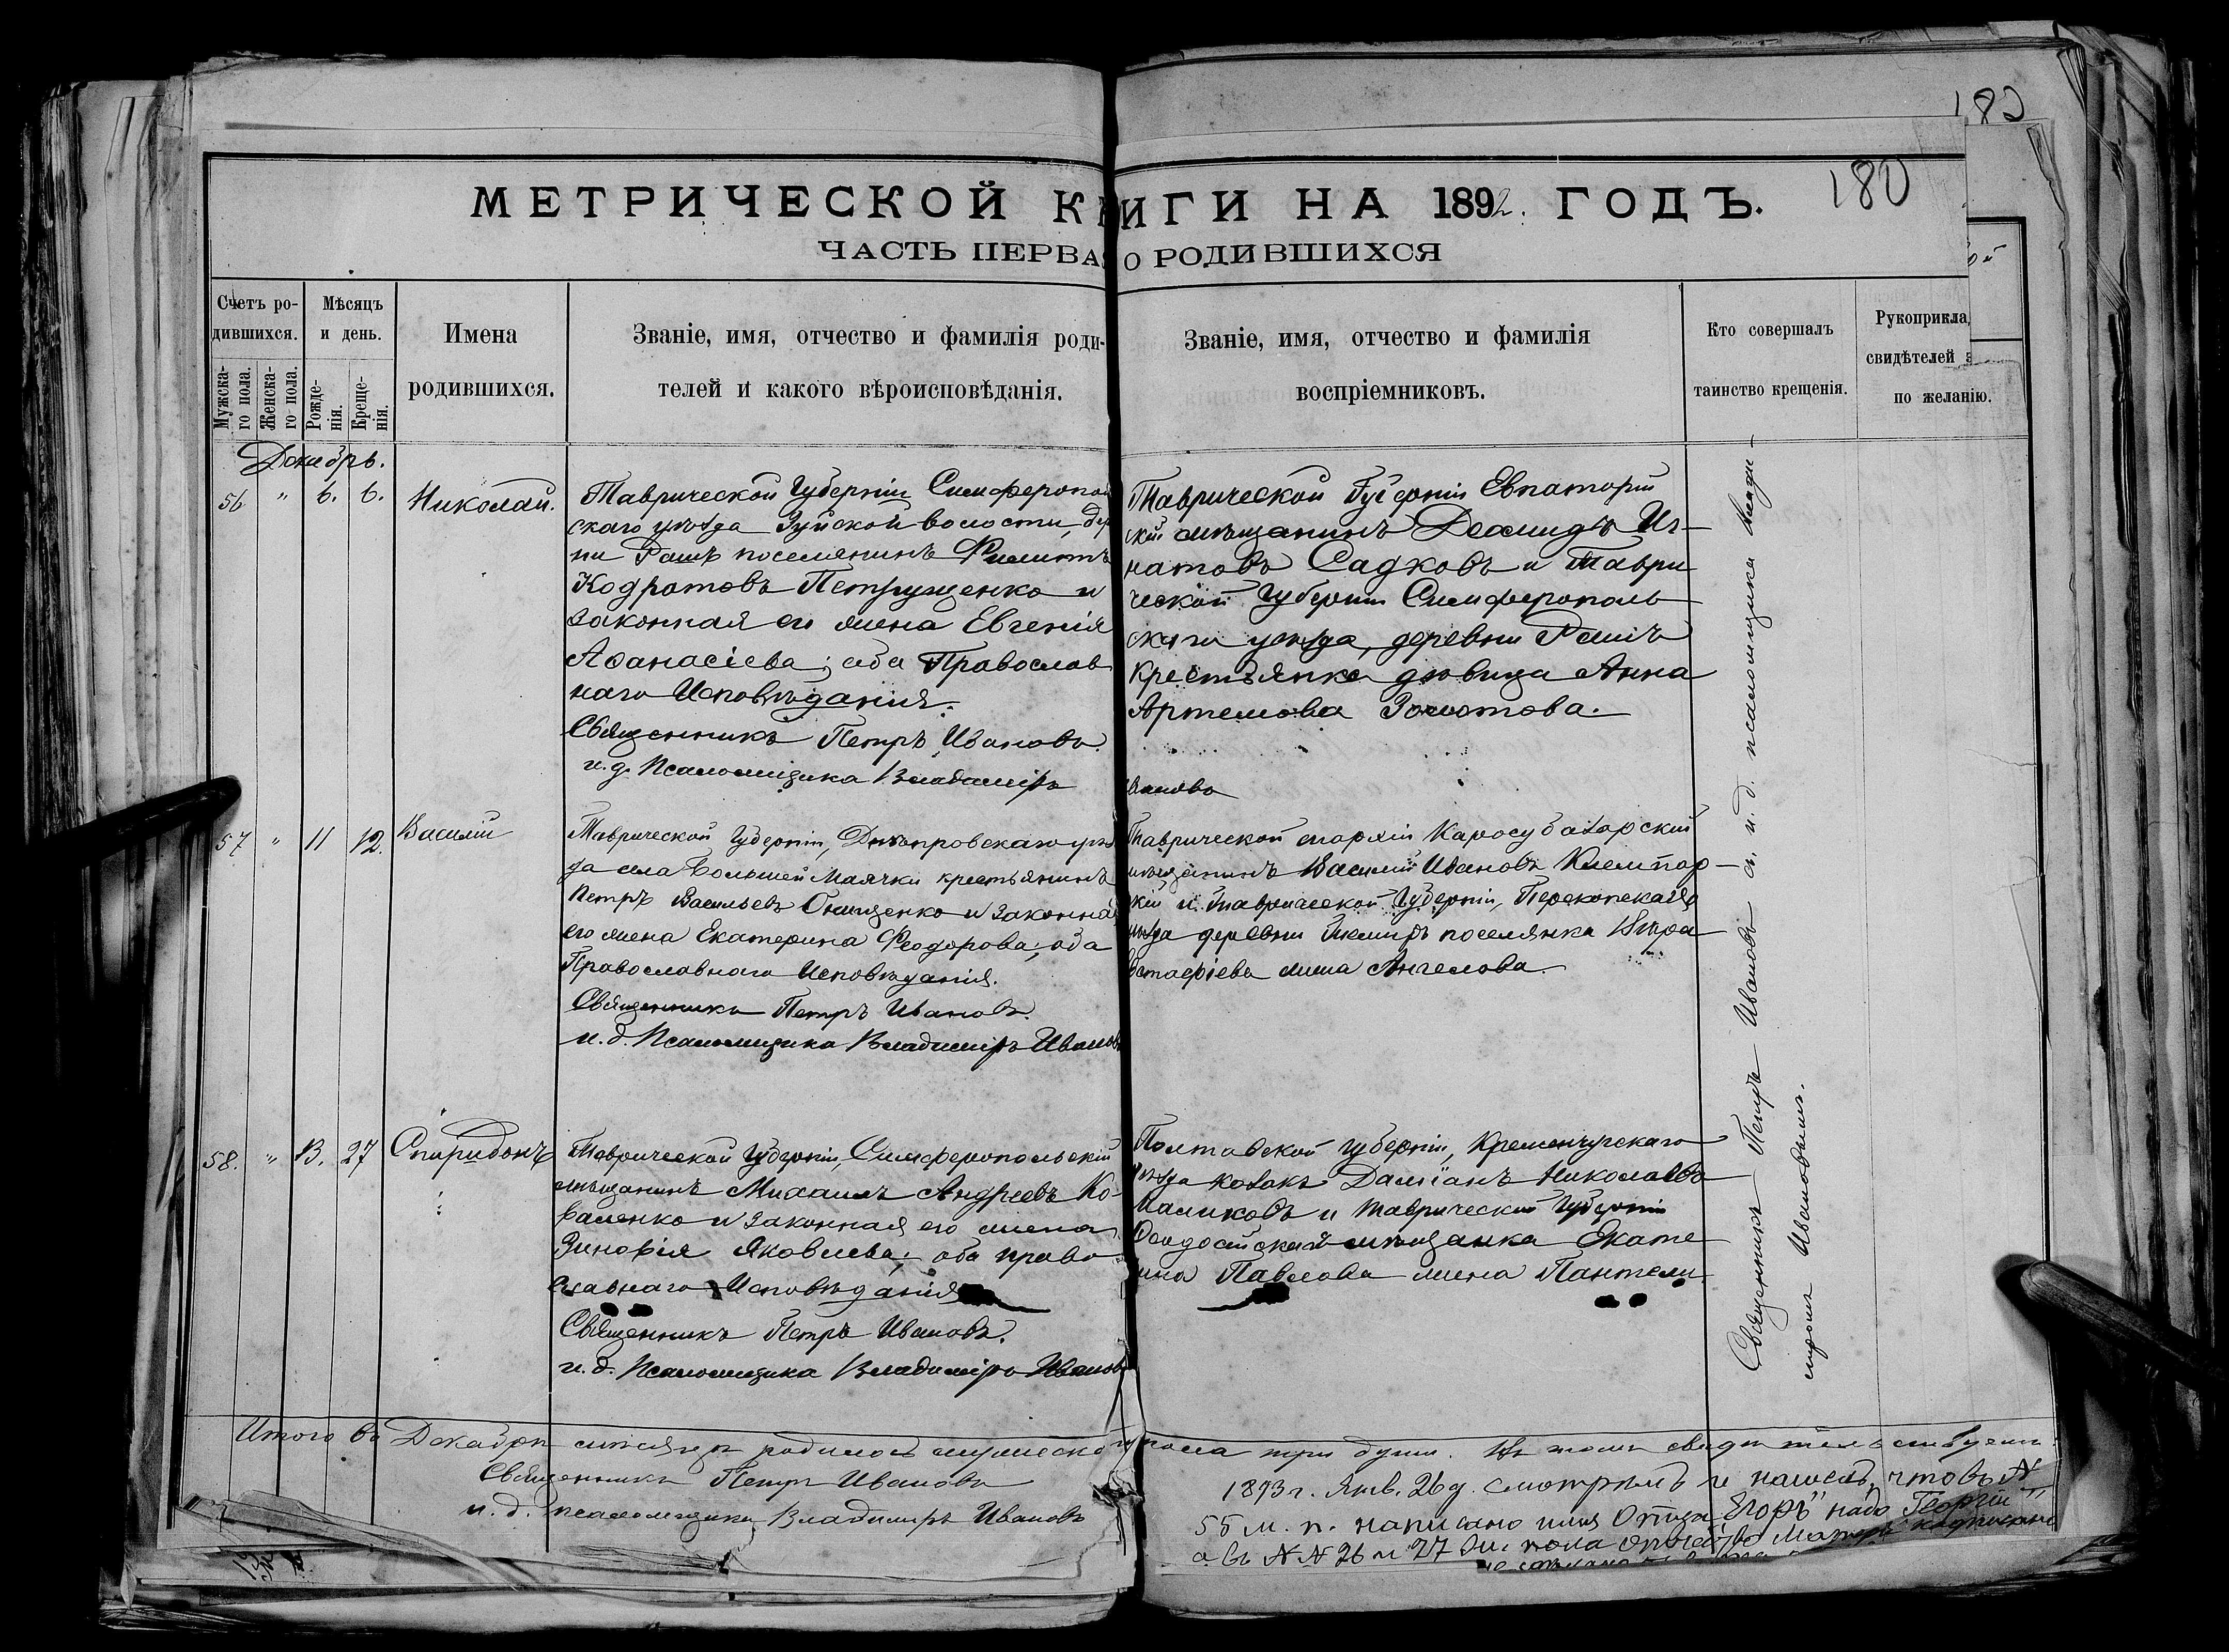 182
180
МЕТРИЧЕСКОЙ КНИГИ НА 1892. ГОДЪ.
ЧАСТЬ ПЕРВА О РОДИВШИХСЯ
Счетъ ро-
дившихся.
Мужска-
го пола.
Женска-
го пола.
Мѣсяцъ
и день.
Рожде-
нія.
Креще-
нія.
Имена
родившихся.
Званіе, имя, отчество и фамилія роди-
телей и какого вѣроисповѣданія.
Званіе, имя, отчество и фамилія
воспріемниковъ.
Кто совершалъ
таинство крещенія.
Рукоприкла
свидѣтелей
по желанію.
Декабрь.
56 " 6. 6. Николай.
Таврической Губерніи Симферопол
скаго уѣзда Зуйской волости, де
ни поселянинъ Филиппъ
Кодратовъ Петрущенко и
законная его жена Евгенія
Аѳанасіева; оба Православ
наго Исповѣданія.
Священникъ Петръ Ивановъ.
и. д. Псаломщика Владиміръ
Таврической Губерніи Евпаторій
скій мѣщанинъ Деамидъ Иг-
натовъ Садковъ и Таври
ческой Губерніи Симферополь
скаго уѣзда, деревни
крестьянка дѣвица Анна
Артемова Золотова.
Ивановъ
57 " 11 12. Василій
Таврической Губерніи, Днѣпровскаго уѣз
да села Большой Маячки крестьянинъ
Петръ Васильевъ Онищенко и законная
его жена Екатерина Ѳеодорова; оба
Православнаго Исповѣданія.
Священникъ Петръ Ивановъ.
и. д. Псаломщика Владиміръ Ивановъ
Таврической епархіи Карасубазарскій
мѣщанинъ Василій Ивановъ
скій и Таврической Губерніи, Перекопскаго
уѣзда деревни поселянка
жена Ангелова.
58. " 13. 27 Спиридонъ
Таврической Губерніи, Симферопольскій
мѣщанинъ Михаилъ Андреевъ Ко-
валенко и законная его жена
Зиновія Яковлева; оба право
славнаго Исповѣданія
Священникъ Петръ Ивановъ.
и. д. Псаломщика Владиміръ Ивановъ
Полтавской губерніи, Кременчугскаго
уѣзда козакъ Даміанъ Николаевъ
Маликовъ и Таврической Губерніи
Ѳеодосійская мѣщанка Екате
рина Павлова жена Пантели
Священникъ Петръ Ивановъ съ и. д. псаломщика Влади-
міромъ Ивановымъ.
Итого въ Декабрѣ мѣсяцѣ родилось мужескаго пола три души. Въ томъ свидѣтельствуемъ:
Священникъ Петръ Ивановъ
и. д. псаломщика Владиміръ Ивановъ
1893 г. Янв. 26 д. смотрѣлъ и нашелъ, что въ №
55 м. п. написано имя Отца "Егоръ" надо "Георгій"
а въ №№ 26 и 27 жен. пола отчество матери надписано